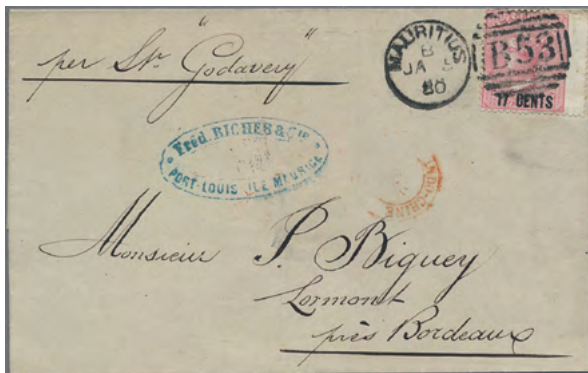 per Str "Godavery"
MAURITIUS
B
JA
80
B53
17 CENTS
Fréd. RICHES & Cie
PORT-LOUIS ILE MAURICE
INDO-CHINE
Monsieur P. Biguey
Lormont
près Bordeaux